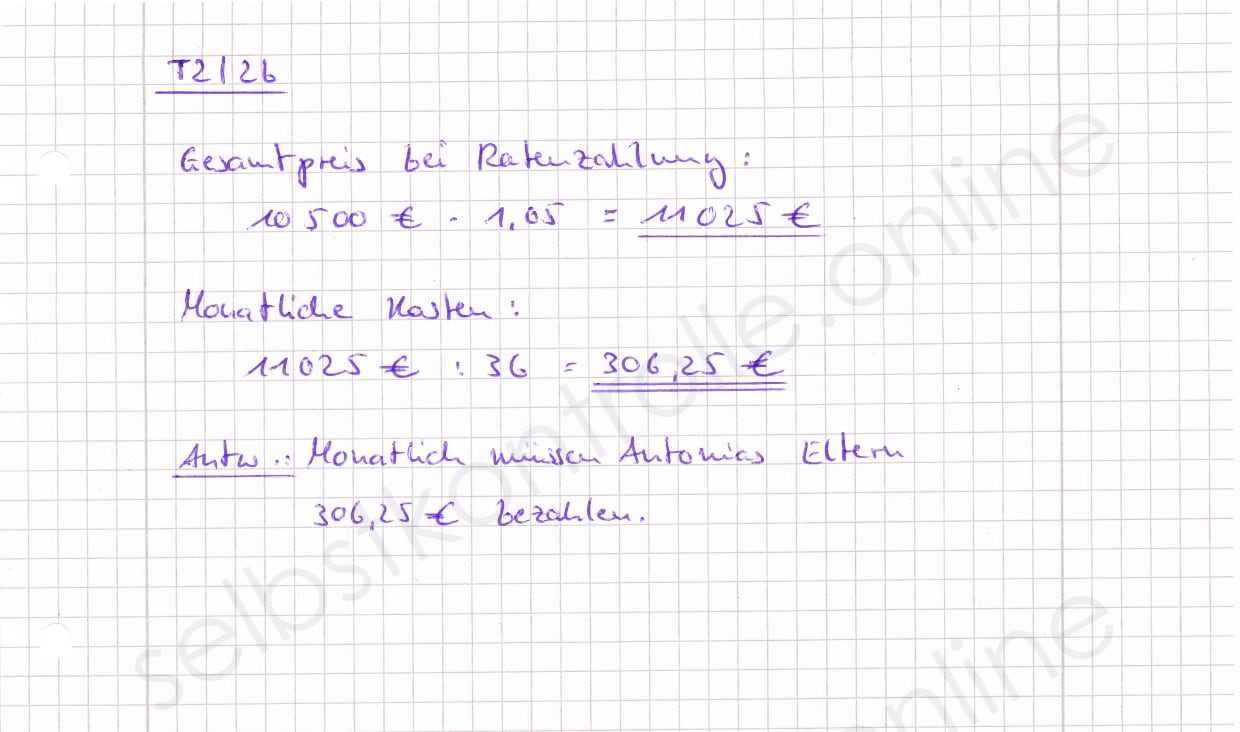 T2/2b
Gesamtpreis bei Ratenzahlung:
10 500 € · 1,05 = 11025 €
Monatliche Kosten:
11025 € : 36 = 306,25 €
Antw.: Monatlich müssen Antonias Eltern
306,25 € bezahlen.
selbstkontrolle.online
online